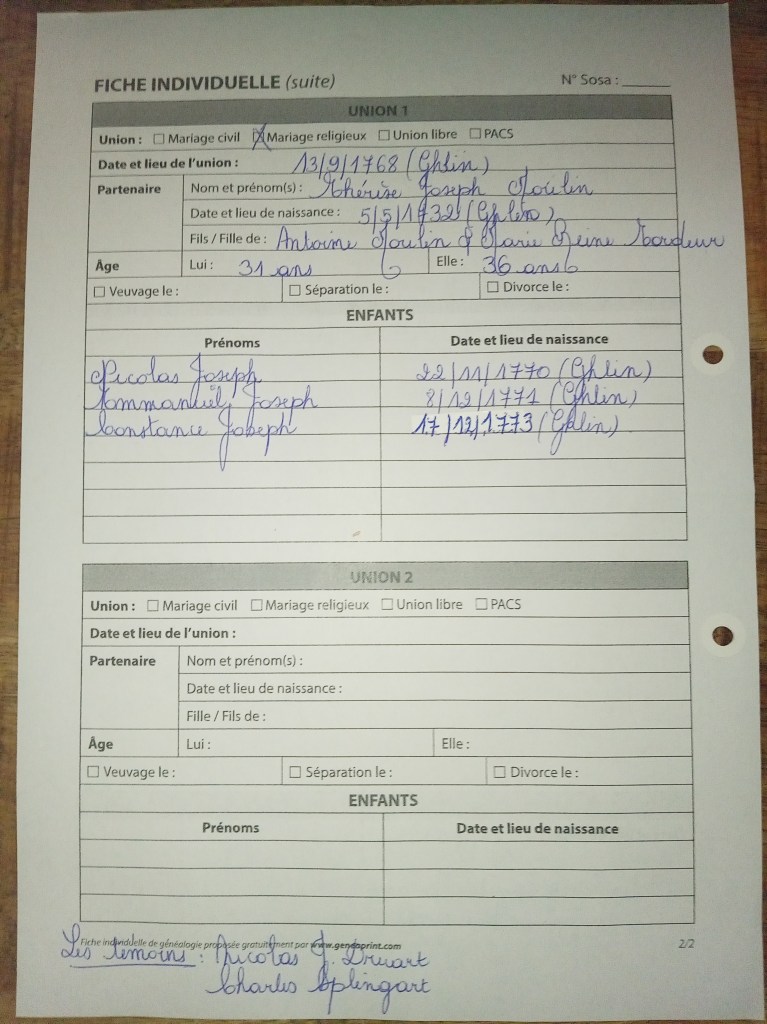 FICHE INDIVIDUELLE (suite) N° Sosa :
UNION 1
Union : Mariage civil Mariage religieux Union libre PACS
Date et lieu de l'union : 13/9/1768 (Ghlin)
Partenaire Nom et prénom(s) : Thérèse Joseph Moulin
Date et lieu de naissance : 5/5/1732 (Ghlin)
Fils / Fille de : Antoine Moulin & Marie Reine Tordeur
Âge Lui : 31 ans Elle : 36 ans
Veuvage le : Séparation le : Divorce le :
ENFANTS
Prénoms Date et lieu de naissance
Nicolas Joseph 22/11/1770 (Ghlin)
Emmanuël Joseph 8/12/1771 (Ghlin)
Constance Joseph 17/12/1773 (Ghlin)
UNION 2
Union : Mariage civil Mariage religieux Union libre PACS
Date et lieu de l'union :
Partenaire Nom et prénom(s) :
Date et lieu de naissance :
Fille / Fils de :
Âge Lui : Elle :
Veuvage le : Séparation le : Divorce le :
ENFANTS
Prénoms Date et lieu de naissance
Fiche individuelle de généalogie proposée gratuitement par www.geneaprint.com 2/2
Les témoins : Nicolas J. Druart
Charles Splingart